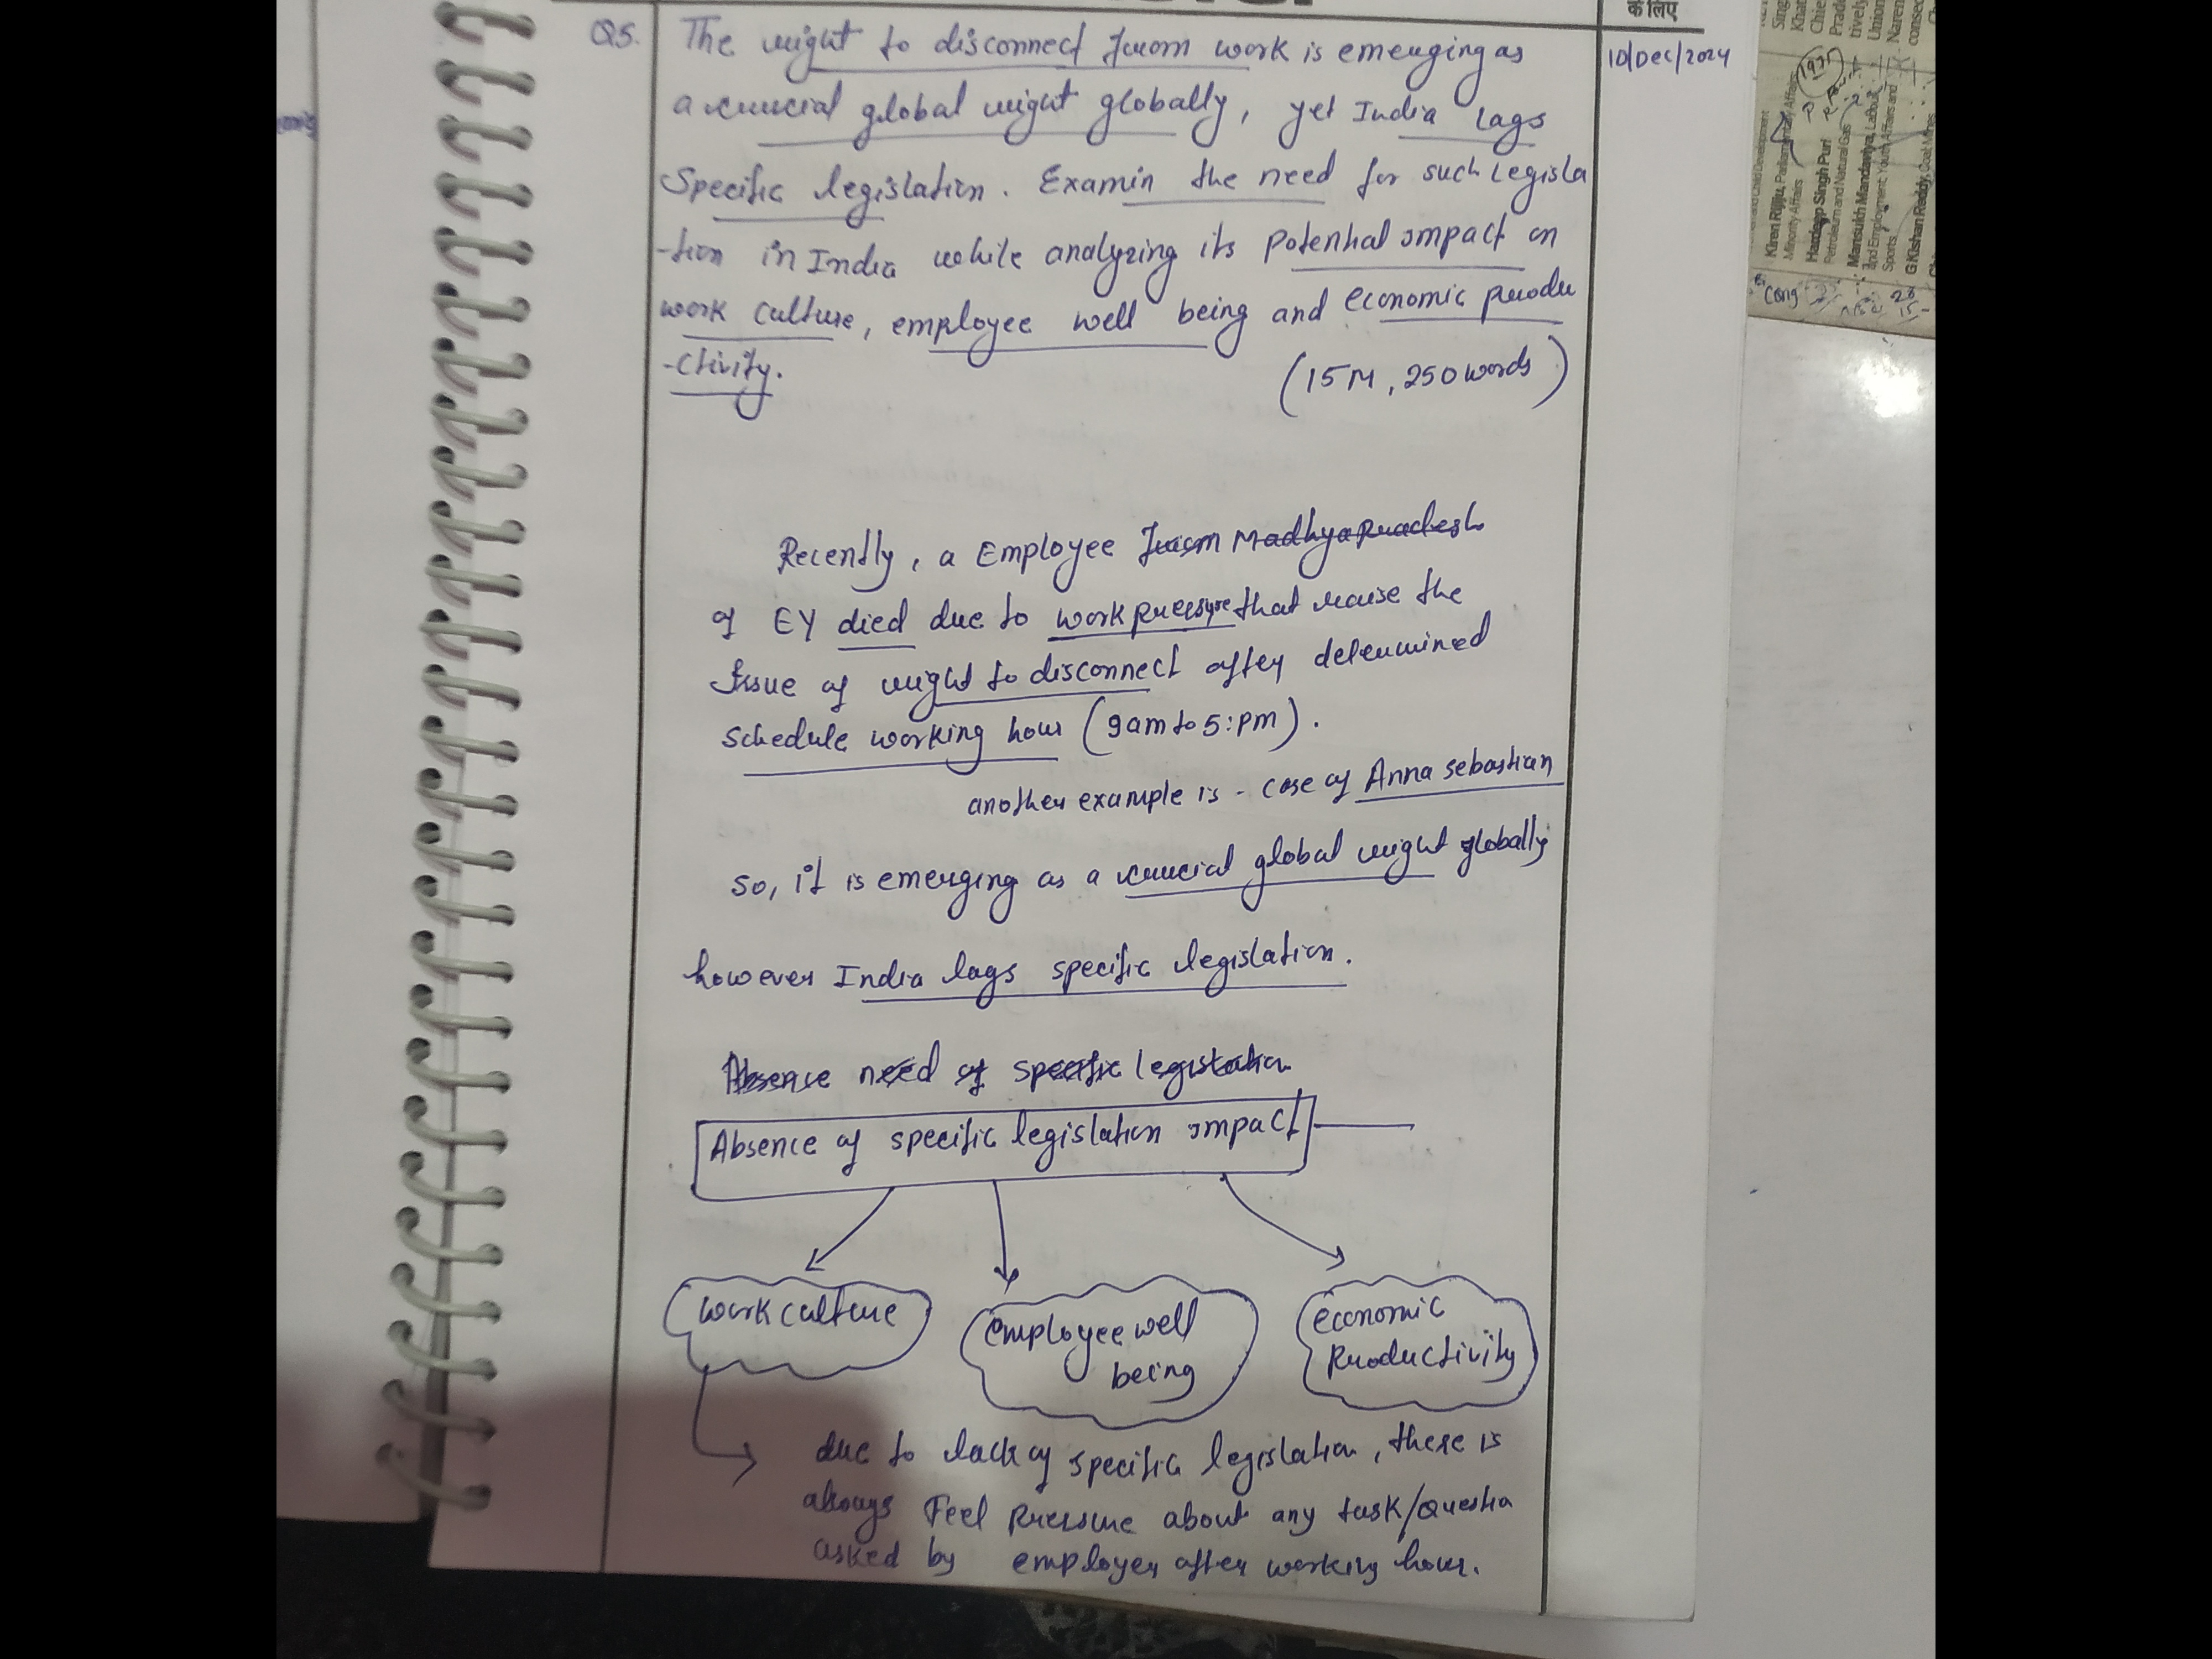 के लिए
Q5. The right to disconnect from work is emerging as
10/Dec/2024
a crucial global right globally, yet India lags
Specific legislation. Examin the need for such Legisla
-tion in India while analyzing its Potential impact on
work culture, employee well being and economic produ
-ctivity.
(15M, 250 words)
Recently, a Employee from Madhya Pradesh
of EY died due to work pressure that raise the
issue of right to disconnect after determined
schedule working hour (9am to 5:pm).
another example is - case of Anna sebastian
so, it is emerging as a crucial global right globally
however India lags specific legislation.
Absence need of specific legislation
Absence of specific legislation impact
work culture
employee well
being
economic
Productivity
due to lack of specific legislation, there is
always Feel Pressure about any task/Questio
asked by employer after working hour.
Kiren Rijiju, Parliamentary Affairs
Minority Affairs
Hardeep Singh Puri
Petroleum and Natural Gas
Mansukh Mandaviya, Labour
and Employment; Youth Affairs and
Sports
G Kishan Reddy, Coal Mines
1975
Cong